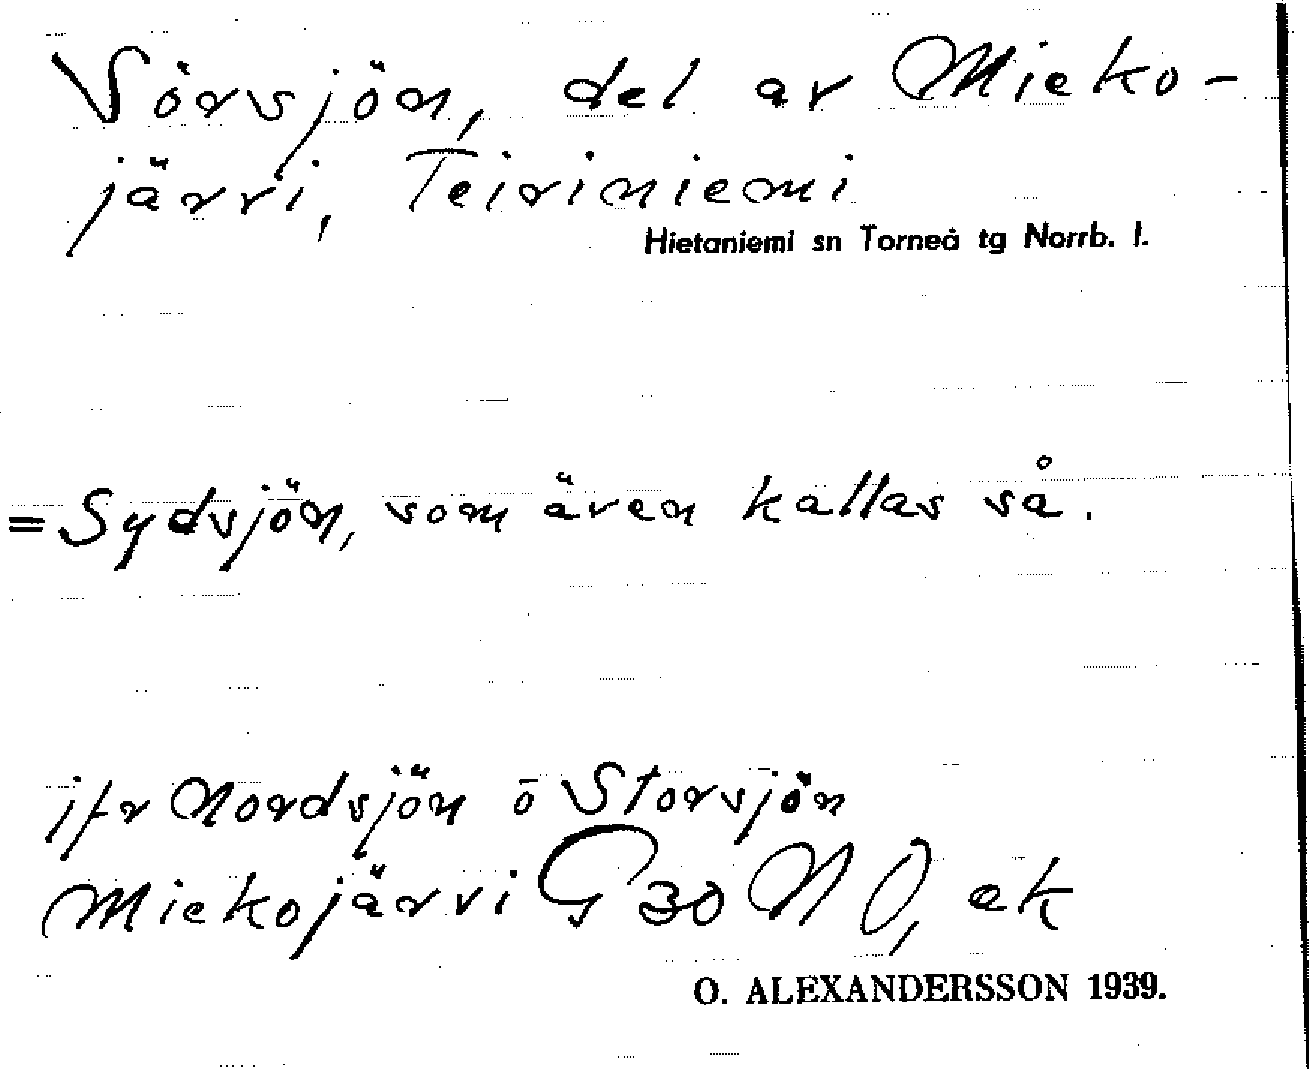 Sörsjön, del av Mieko-
järvi, Teiriniemi
Hietaniemi sn Torneå tg Norrb. l.
= Sydsjön, som även kallas så.
jfr Nordsjön o Storsjön
Miekojärvi G 30 NO, ek
O. ALEXANDERSSON 1939.